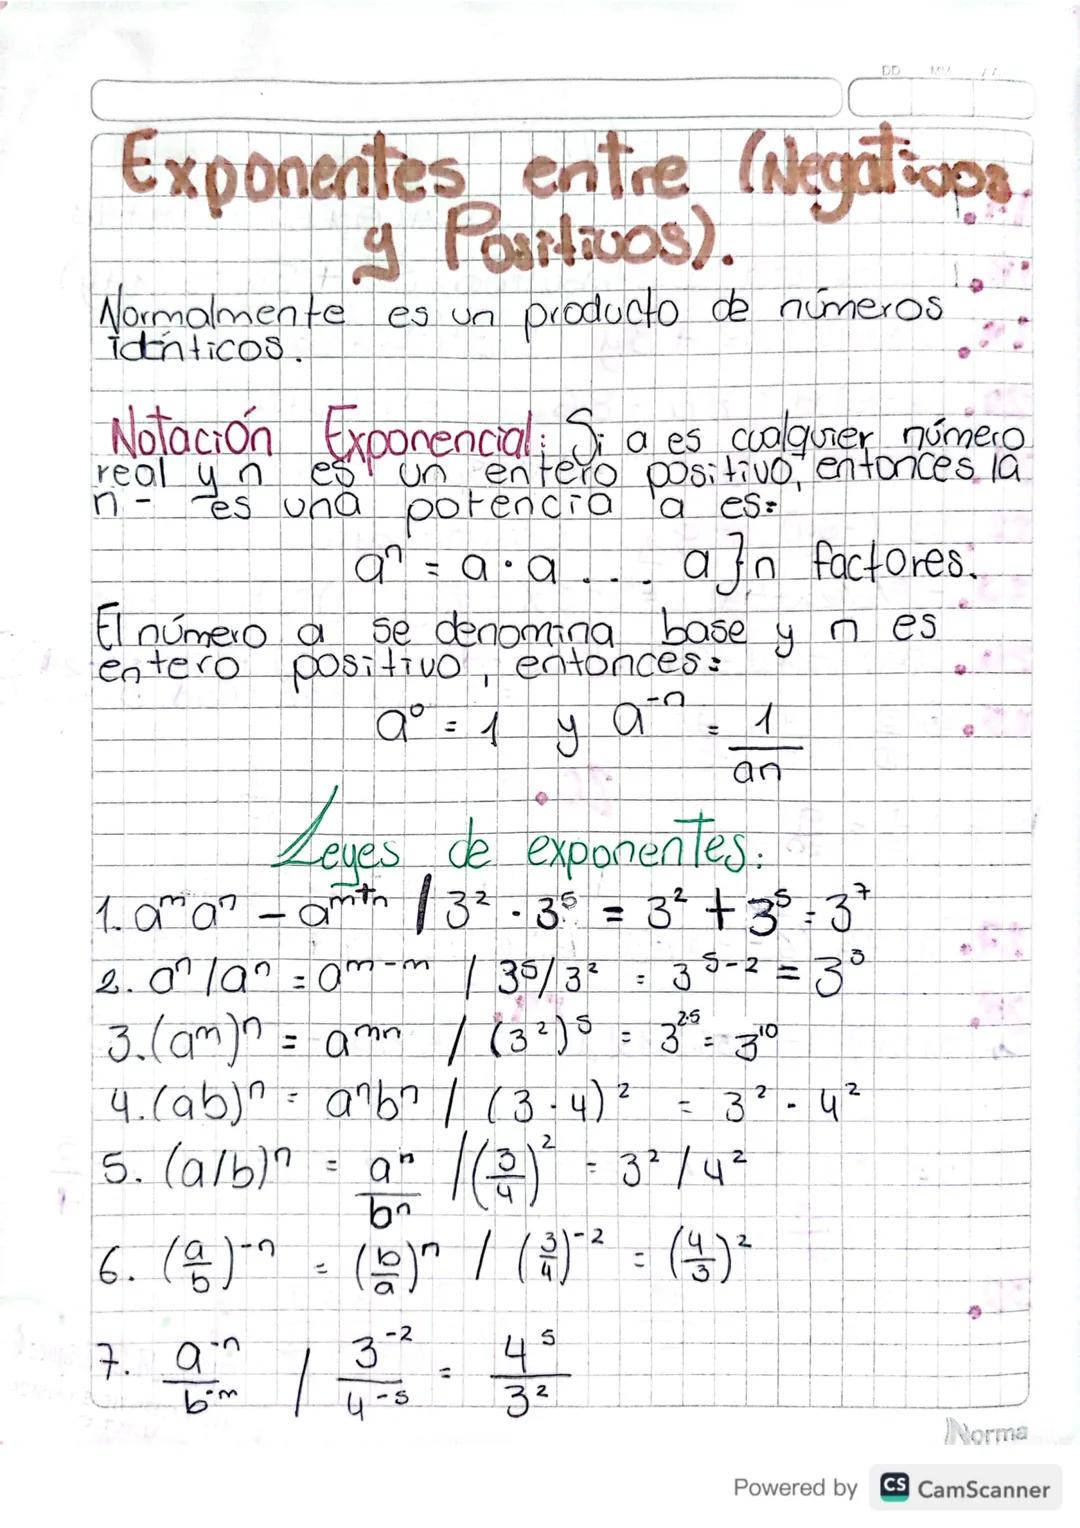 DD MM AA
Exponentes entre (Negativos
y Positivos).
Normalmente es un producto de números
idénticos.
Notación Exponencial: Si a es cualquier número
real y n es un entero positivo, entonces la
n - es una potencia a es:
aⁿ = a · a . . . a } n factores.
El número a se denomina base y n es
entero positivo, entonces:
a⁰ = 1 y a⁻ⁿ = 1/an
Leyes de exponentes.
1. aᵐaⁿ - aᵐ⁺ⁿ / 3² · 3⁵ = 3² + 3⁵ = 3⁷
2. aⁿ/aⁿ = aᵐ⁻ᵐ / 3⁵/3² = 3⁵⁻² = 3³
3. (aᵐ)ⁿ = aᵐⁿ / (3²)⁵ = 3²·⁵ = 3¹⁰
4. (ab)ⁿ = aⁿbⁿ / (3·4)² = 3² · 4²
5. (a/b)ⁿ = aⁿ/bⁿ / (3/4)² = 3² / 4²
6. (a/b)⁻ⁿ = (b/a)ⁿ / (3/4)⁻² = (4/3)²
7. a⁻ⁿ/b⁻ᵐ / 3⁻²/4⁻⁵ = 4⁵/3²
Norma
Powered by CS CamScanner